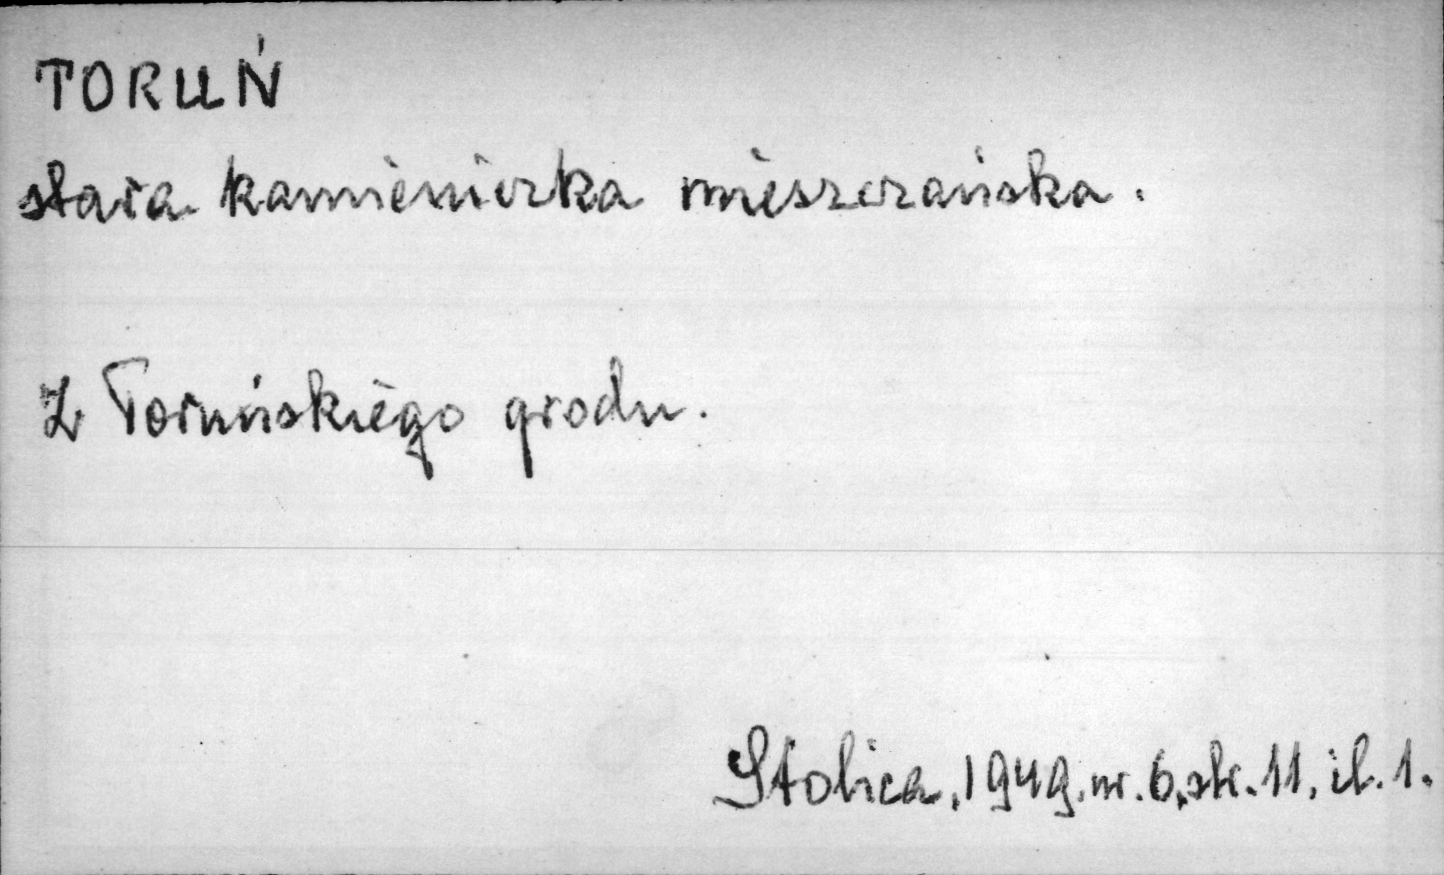 TORUŃ
stara kamieniczka mieszczańska.
Z Toruńskiego grodu.
Stolica, 1949. nr. 6, str. 11, il. 1.